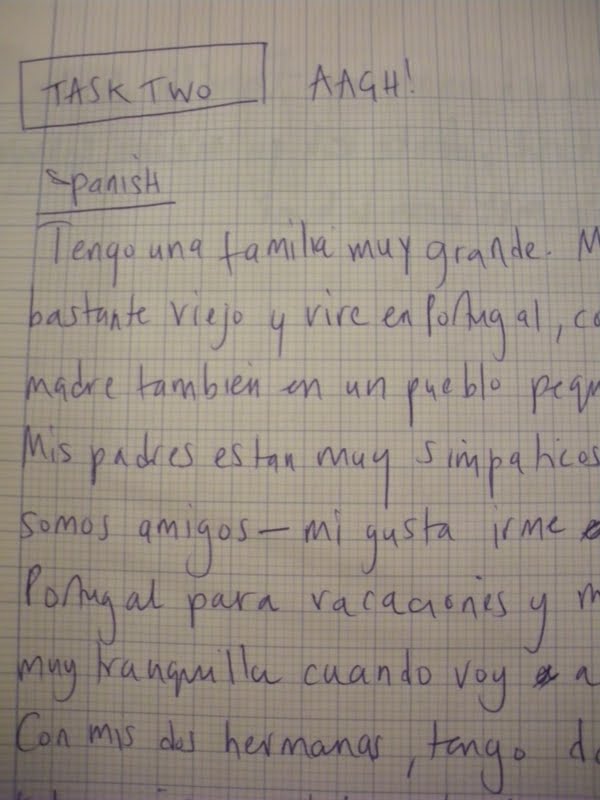 TASK TWO AAGH!
Spanish
Tengo una familia muy grande. M
bastante viejo y vive en Portugal, co
madre tambien en un pueblo pequ
Mis padres estan muy simpaticos
somos amigos — mi gusta irme
Portugal para vacaciones y m
muy tranquilla cuando voy a
Con mis dos hermanas, tengo do